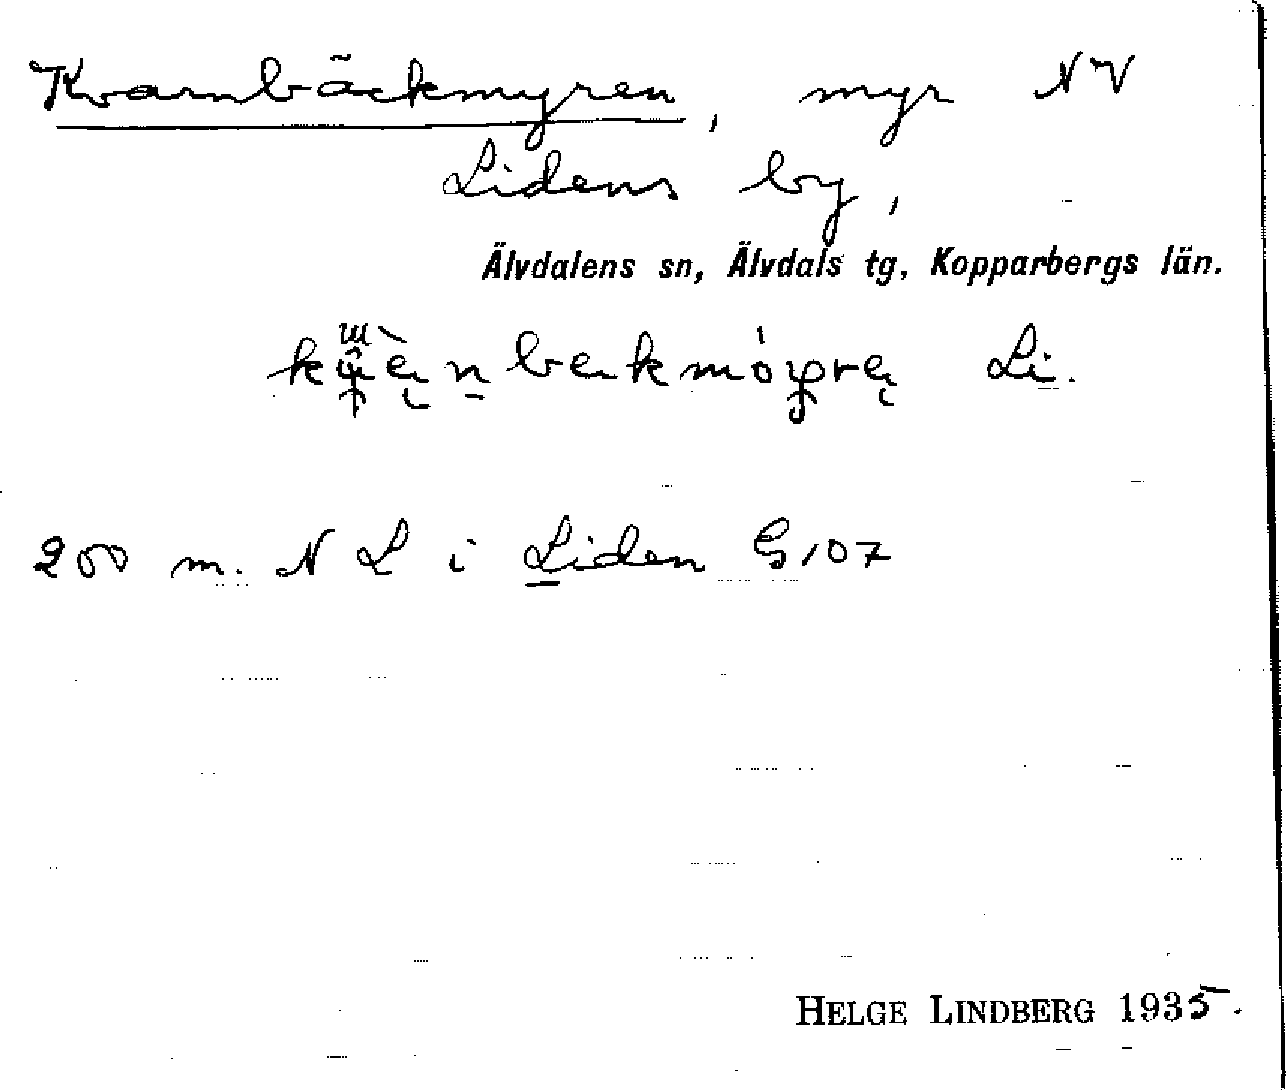 Kvarnbäckmyren, myr NV
Lidens by,
Älvdalens sn, Älvdals tg, Kopparbergs län.
Li.
200 m. N L i Liden G107
HELGE LINDBERG 1935.